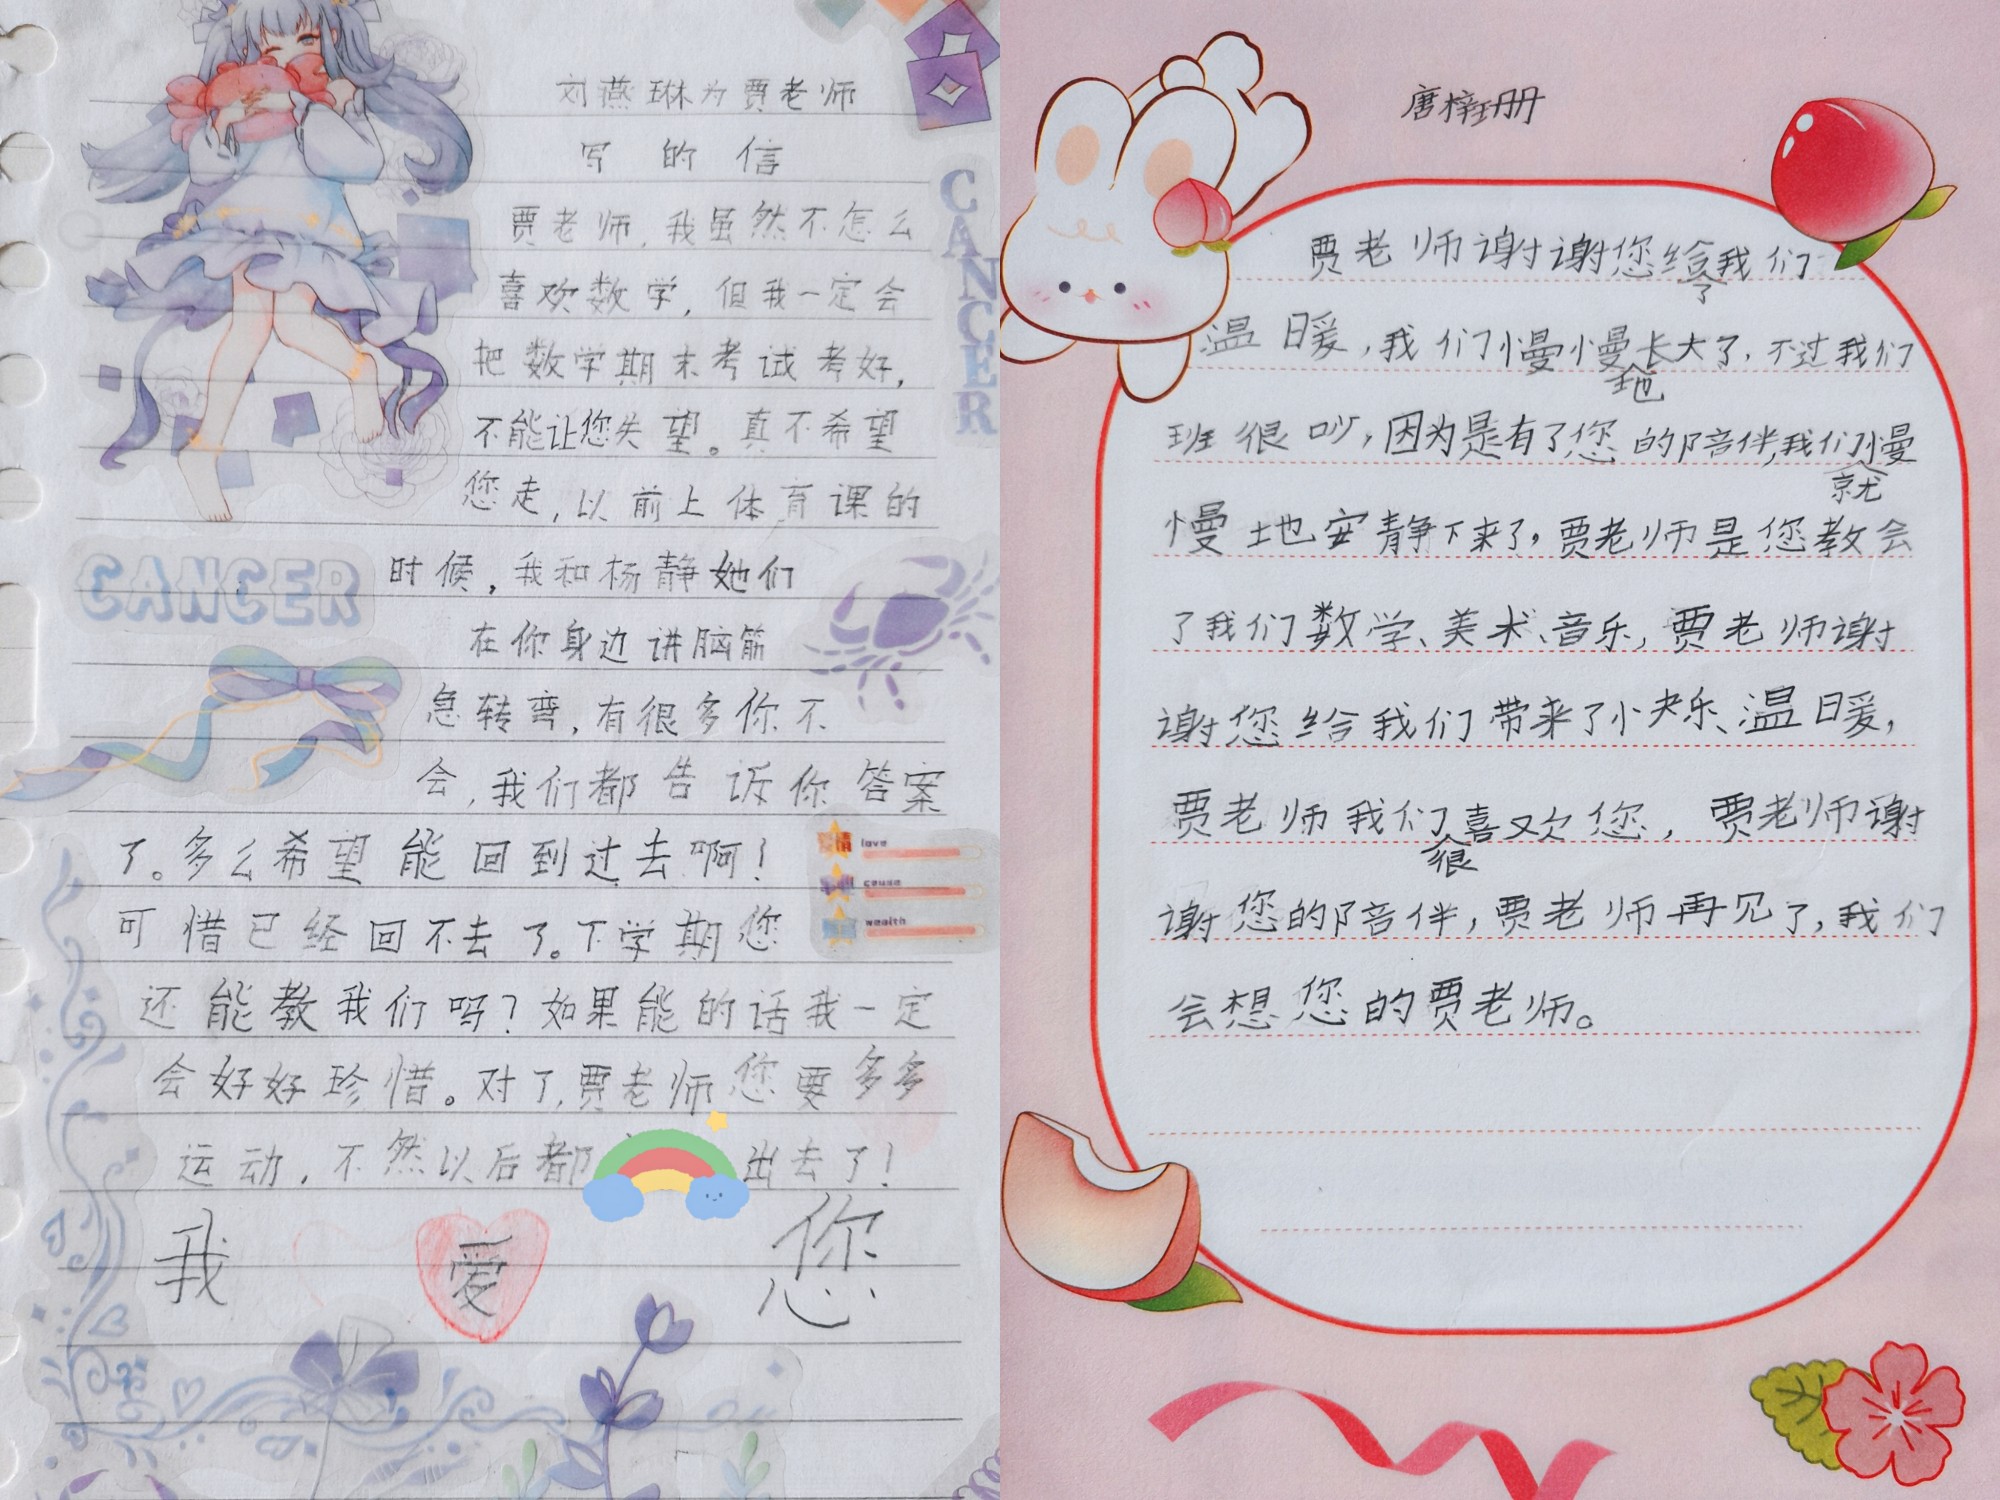 刘燕琳为贾老师
写的信
贾老师,我虽然不怎么
喜欢数学,但我一定会
把数学期末考试考好,
不能让您失望。真不希望
您走,以前上体育课的
时候,我和杨静她们
在你身边讲脑筋
急转弯,有很多你不
会,我们都告诉你答案
了。多么希望能回到过去啊!
可惜已经回不去了。下学期您
还能教我们吗?如果能的话我一定
会好好珍惜。对了,贾老师您要多多
运动,不然以后都
出去了!
我爱您
CANCER
CANCER
love
cause
wealth
唐梓珊
贾老师谢谢您给了我们
温暖,我们慢慢地长大了,不过我们
班很吵,因为是有了您的陪伴,我们就慢
慢地安静下来了,贾老师是您教会
了我们数学、美术、音乐,贾老师谢
谢您给我们带来了小快乐、温暖,
贾老师我们很喜欢您,贾老师谢
谢您的陪伴,贾老师再见了,我们
会想您的贾老师。